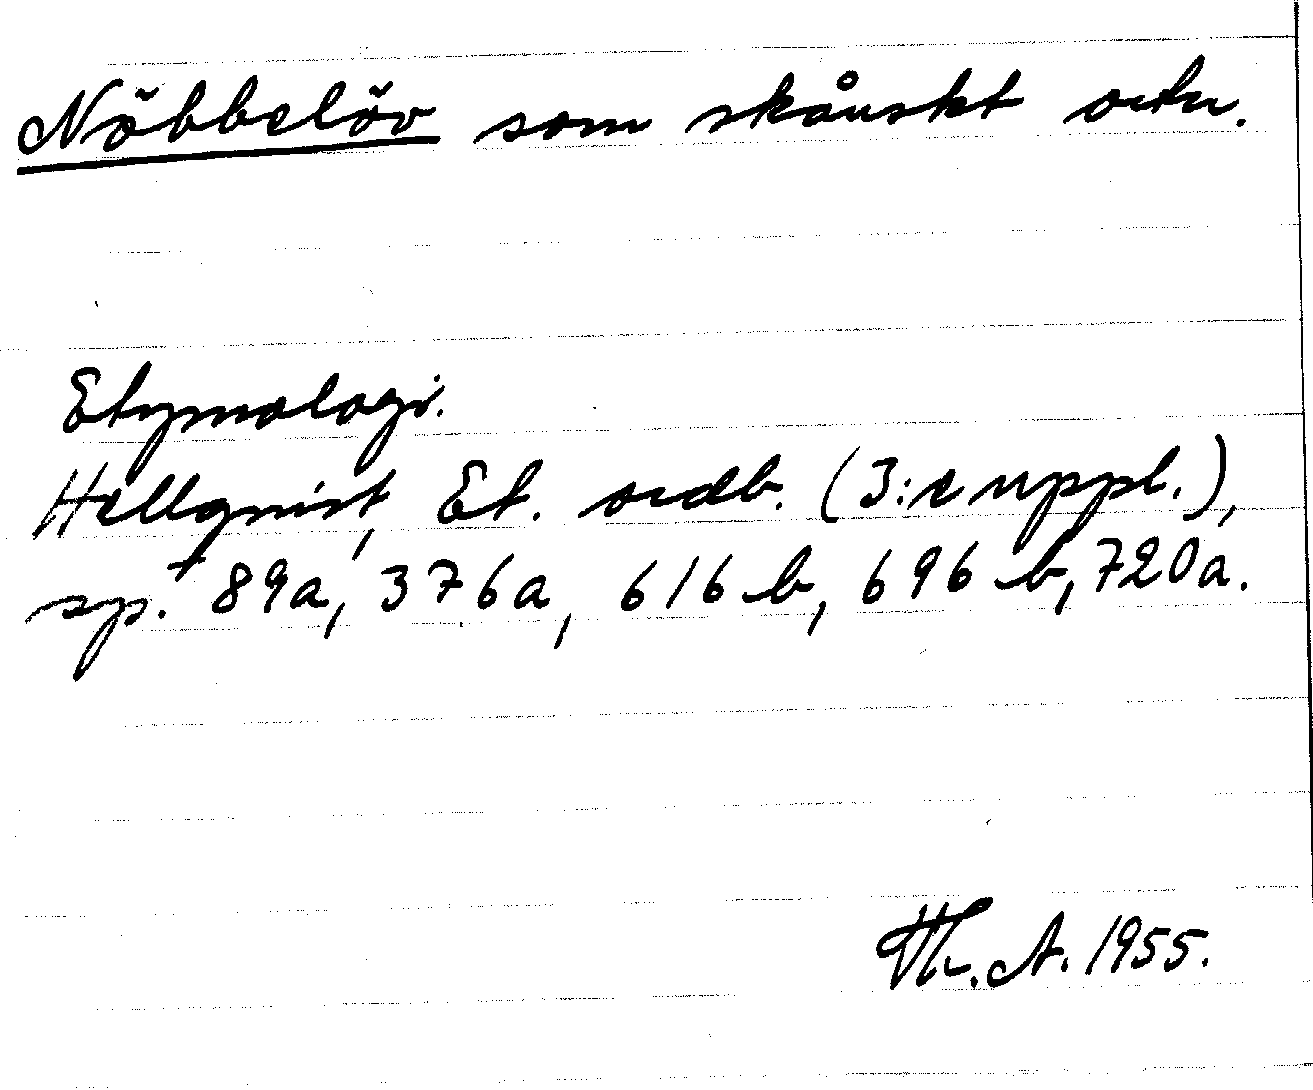 Nöbbelöv som skånskt ortn.
Etymologi.
Hellquist, Et. ordb. (3:e uppl.),
sp. 89a, 376a, 616 b, 696 b, 720a.
Th. A. 1955.